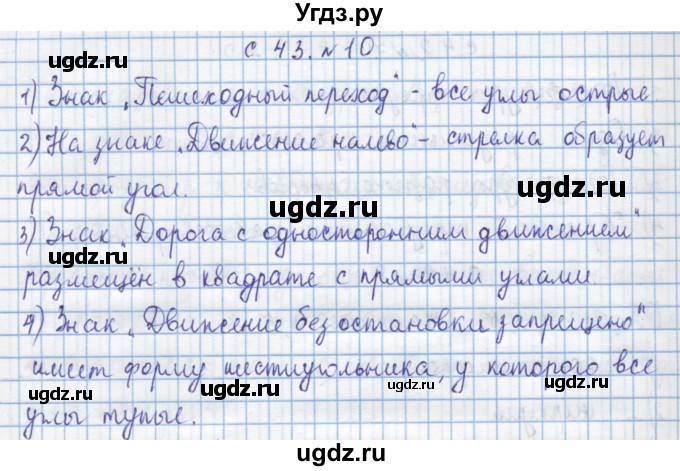 Угдз.ру
с. 43. №10
1) Знак „Пешеходный переход" - все углы острые
2) На знаке „Движение налево" - стрелка образует
прямой угол.
3) Знак „Дорога с односторонним движением"
размещён в квадрате с прямыми углами.
4) Знак „Движение без остановки запрещено"
имеет форму шестиугольника, у которого все
углы тупые.
ugdz.ru ugdz.ru ugdz.ru
ugdz.ru
ugdz.ru
ugdz.ru ugdz.ru
ugdz.ru ugdz.ru
ugdz.ru ugdz.ru
Угдз.ру